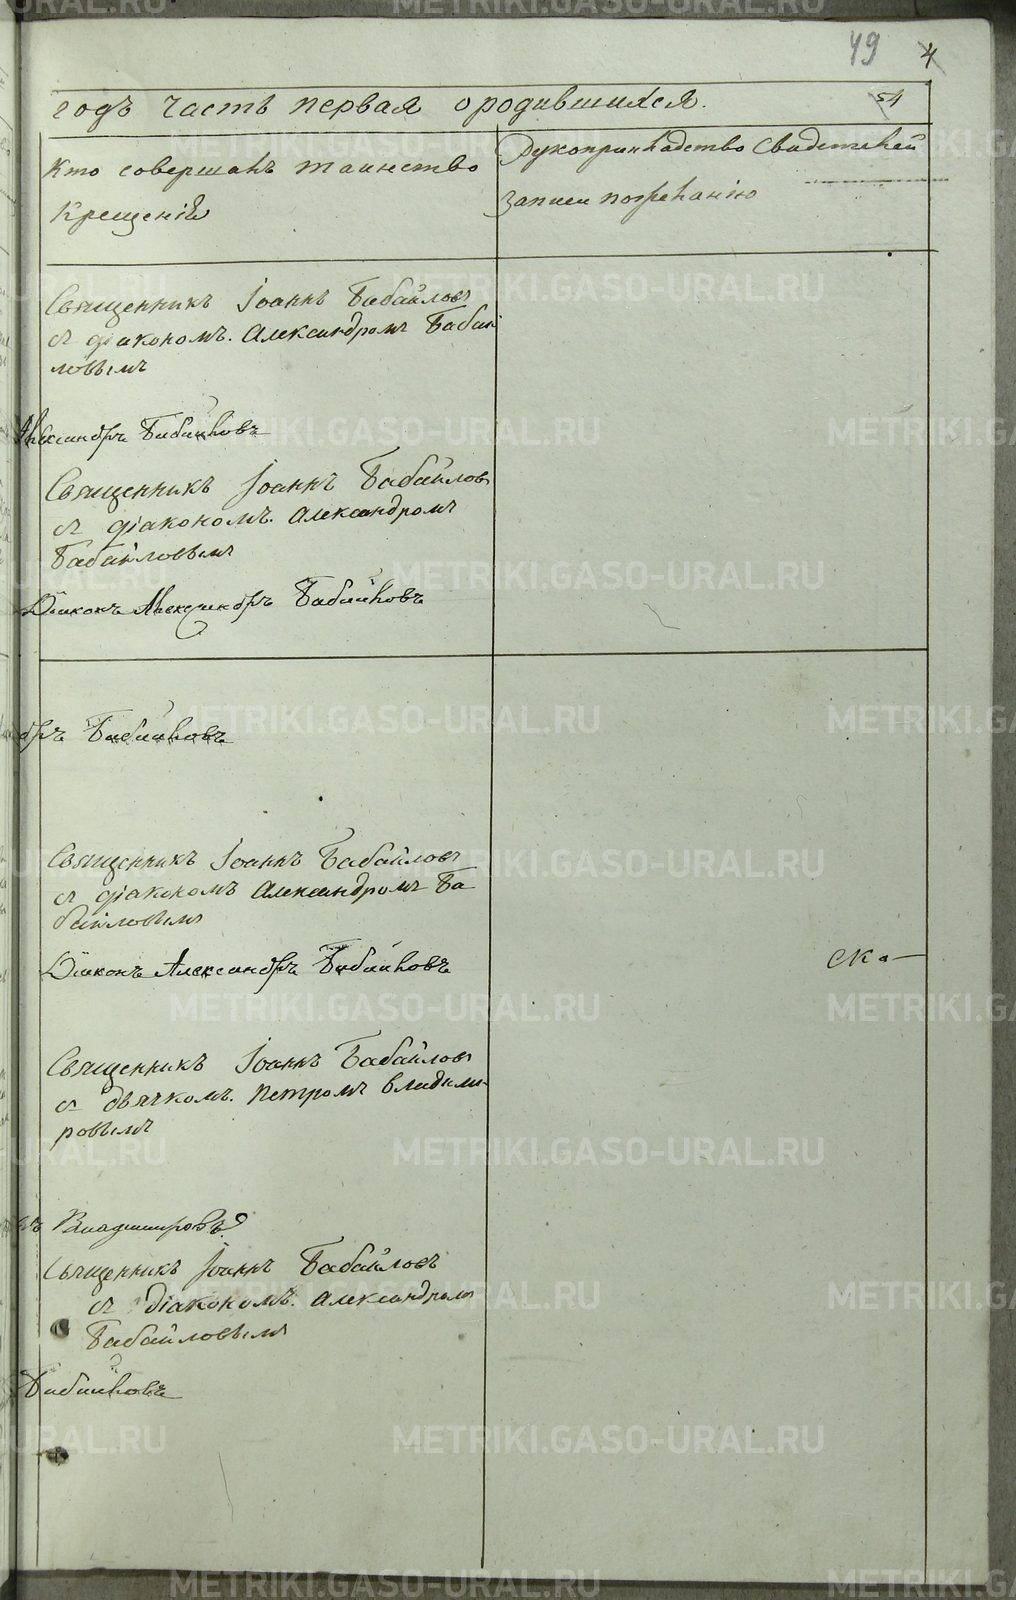 49 4
годъ часть первая о родившихся. 54
Кто совершалъ таинство
Крещенія
Рукоприкладство свидетелей
записи по желанію
Священникъ Іоаннъ Бабайловъ
съ діакономъ. Александромъ Бабай
ловымъ
Александръ Бабайловъ
Священникъ Іоаннъ Бабайловъ
съ діакономъ. Александромъ
Бабайловымъ
Діаконъ Александръ Бабайловъ
дръ Бабайловъ
Священникъ Іоаннъ Бабайловъ
съ діакономъ Александромъ Ба
байловымъ
Діаконъ Александръ Бабайловъ
ска
Священникъ Іоаннъ Бабайловъ
съ дьячкомъ. Петромъ Владими
ровымъ
Владимировъ
Священникъ Іоаннъ Бабайловъ
съ діакономъ. Александромъ
Бабайловымъ
Бабайловъ
METRIKI.GASO-URAL.RU